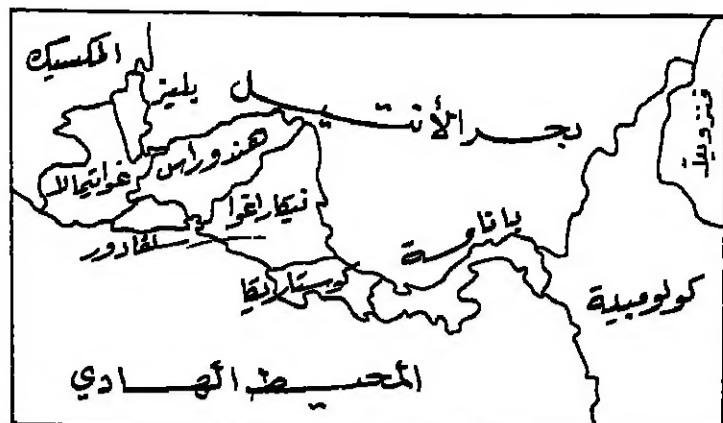 المكسيك
بليز
بحر الأنتيل
فنزويلا
هندوراس
غواتيمالا
نيكاراغوا
سلفادور
باناما
كوستاريكا
كولومبية
المحيط الهادي